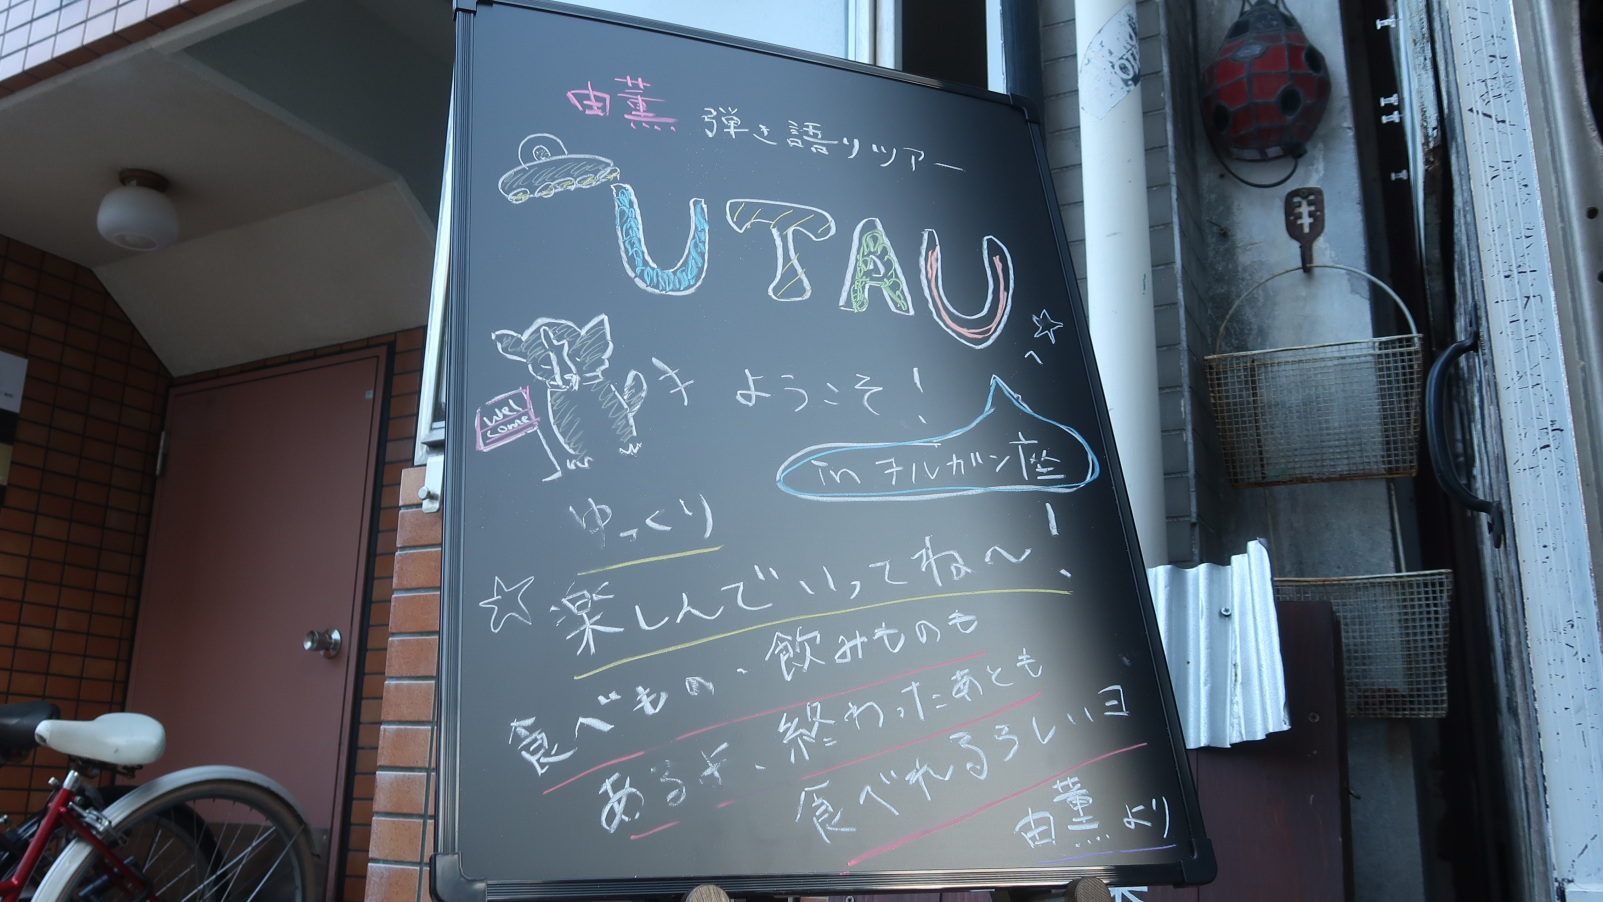 由薫 弾き語りツアー
UTAU
ようこそ!
Wel
come
in ヲルガン座
ゆっくり
楽しんでいってね〜!
食べもの、飲みものも
あるぞ、終わったあとも
食べれるらしいヨ
由薫より